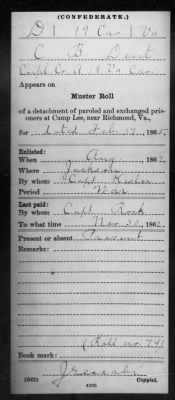 (CONFEDERATE.)
D 19 Cav. Va
C. B. Dent
Capt. Co. A, 19 Va. Cav.
Appears on
Muster Roll
of a detachment of paroled and exchanged pris-
oners at Camp Lee, near Richmond, Va.,
for dated Feb. 17, 1865
Enlisted:
When Aug , 186
Where Jackson
By whom Capt.
Period War
Last paid:
By whom Capt. Rook
To what time Nov. 30, 186
Present or absent Present
Remarks:
(Roll No. 74)
Book mark:
(642)
Copyist.